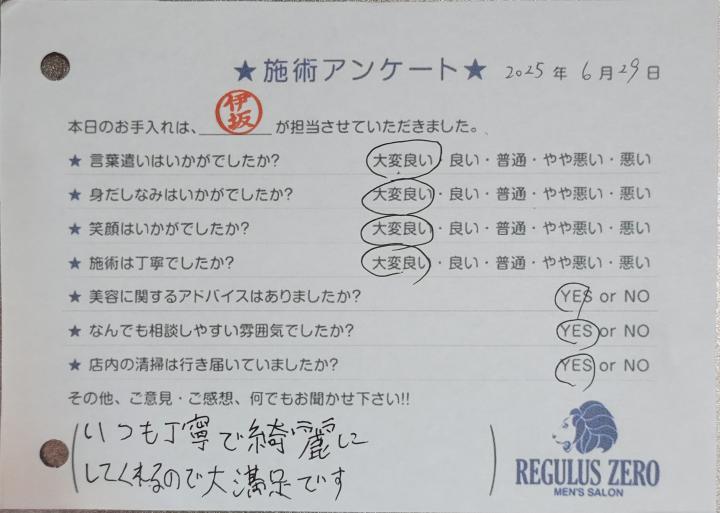 ★施術アンケート★ 2025年 6月29日
本日のお手入れは、伊坂が担当させていただきました。
★ 言葉遣いはいかがでしたか? 大変良い・良い・普通・やや悪い・悪い
★ 身だしなみはいかがでしたか? 大変良い・良い・普通・やや悪い・悪い
★ 笑顔はいかがでしたか? 大変良い・良い・普通・やや悪い・悪い
★ 施術は丁寧でしたか? 大変良い・良い・普通・やや悪い・悪い
★ 美容に関するアドバイスはありましたか? YES or NO
★ なんでも相談しやすい雰囲気でしたか? YES or NO
★ 店内の清掃は行き届いていましたか? YES or NO
その他、ご意見・ご感想、何でもお聞かせ下さい!!
いつも丁寧で綺麗に
してくれるので大満足です
REGULUS ZERO
MEN'S SALON